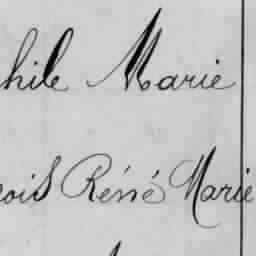 hile Marie
çois Réné Marie